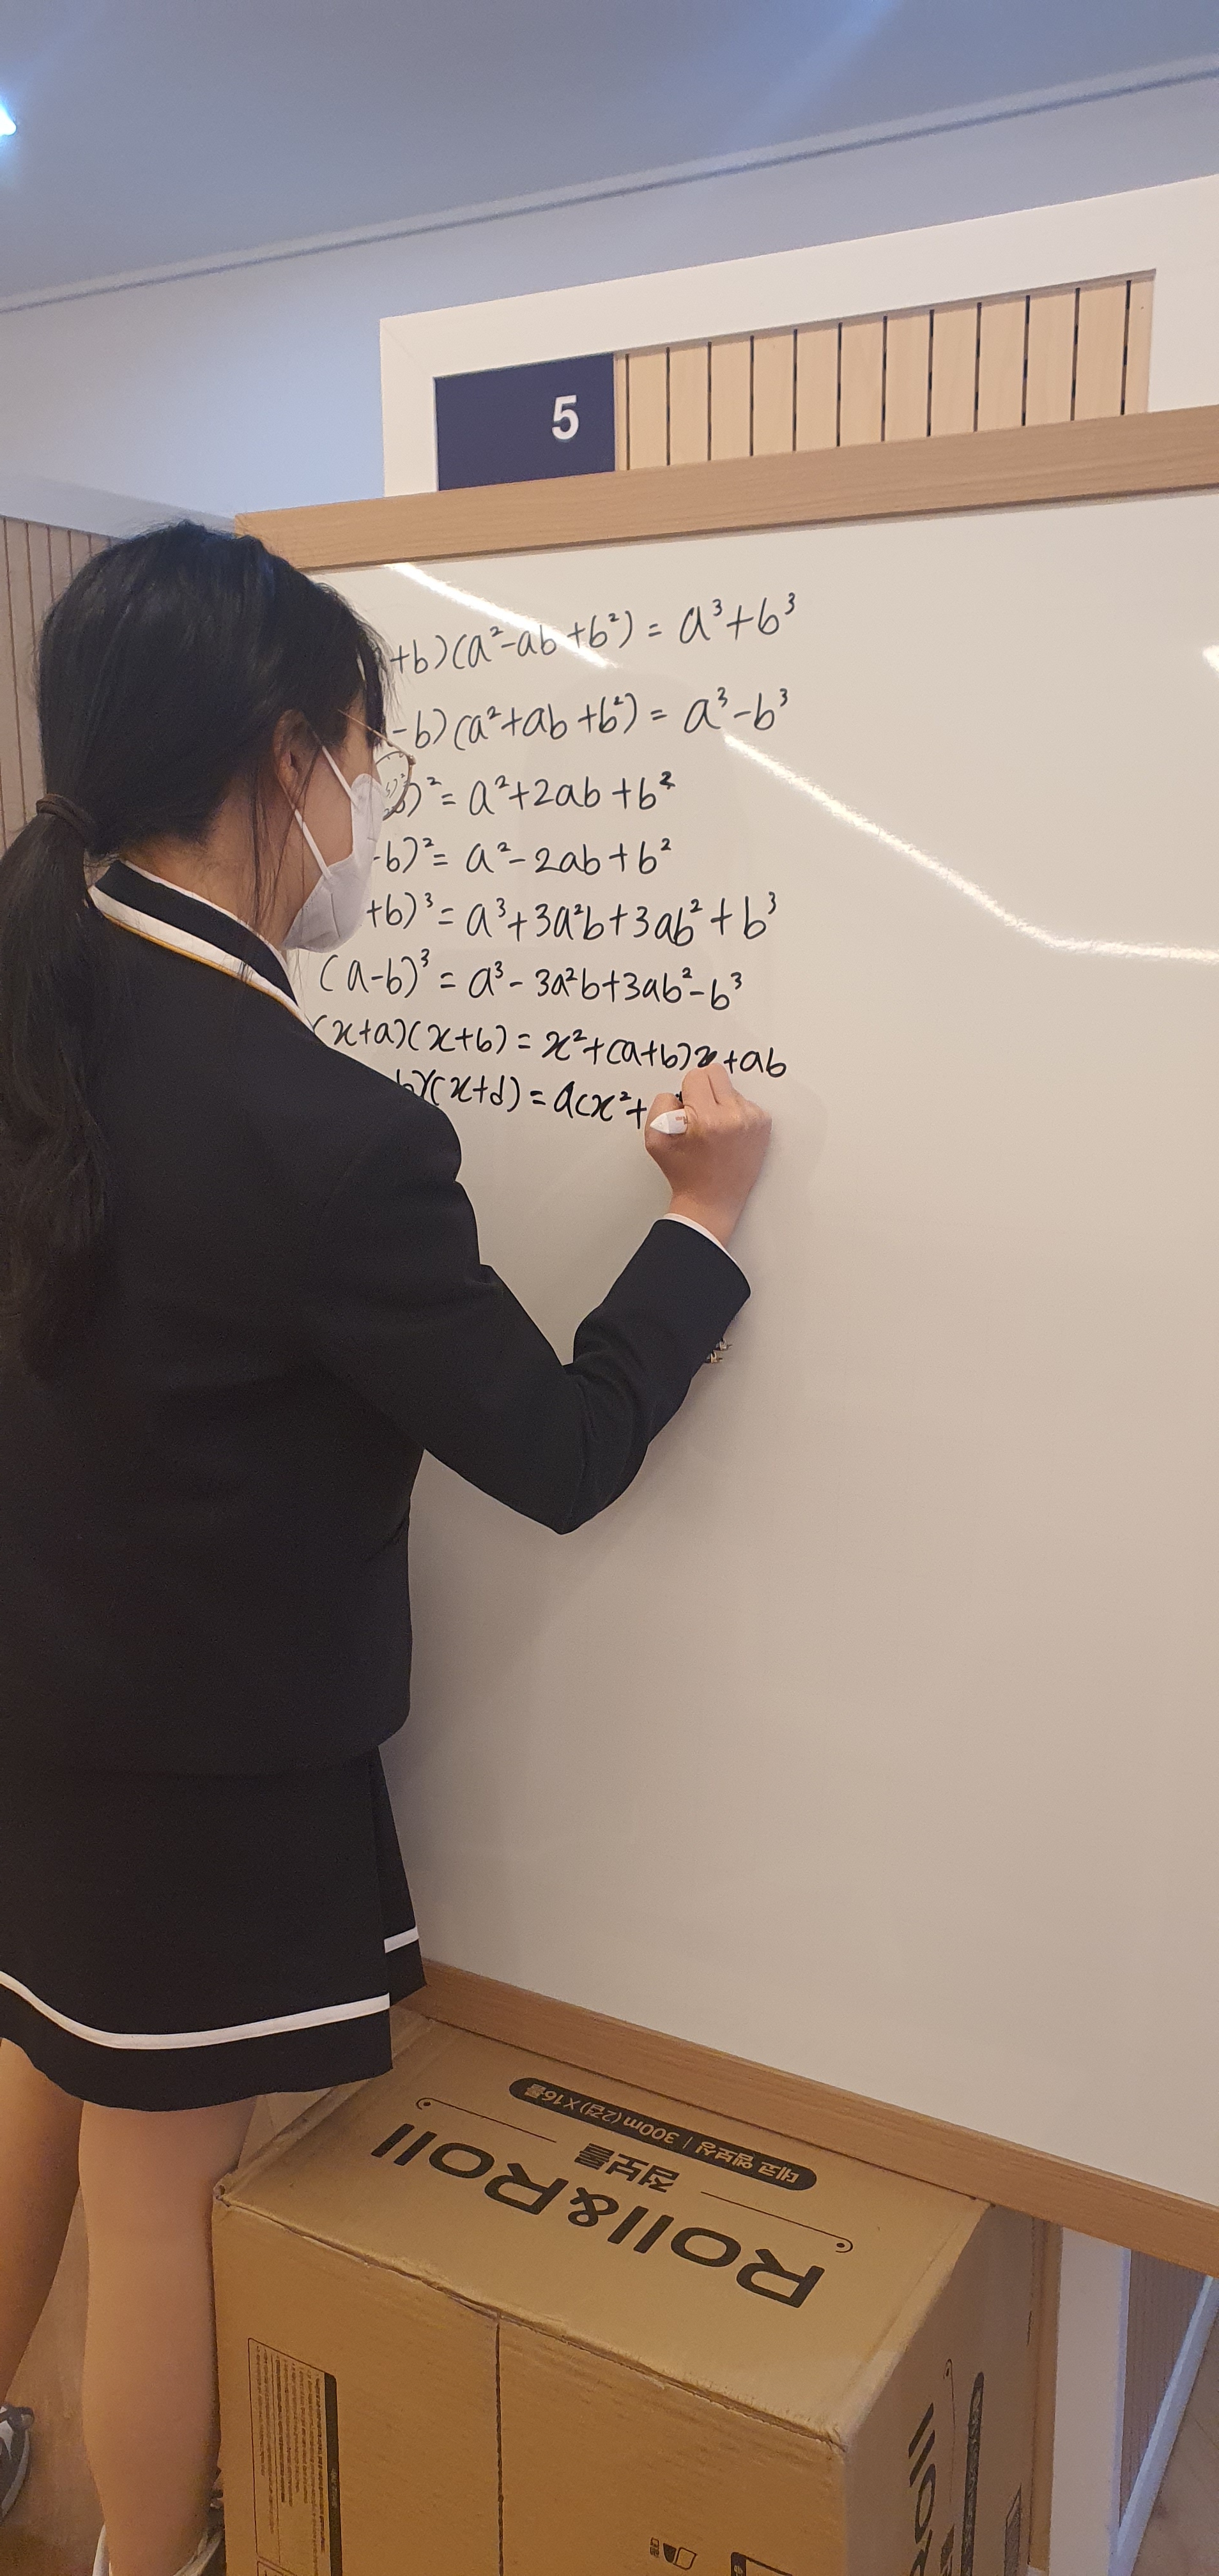 5
+b)(a²-ab+b²) = a³+b³
-b)(a²+ab+b²) = a³-b³
b)²= a²+2ab+b²
-b)²= a²-2ab+b²
+b)³= a³+3a²b+3ab²+b³
(a-b)³= a³-3a²b+3ab²-b³
(x+a)(x+b) = x²+(a+b)x+ab
b)(x+d) = acx²+
데코 엠보싱 | 300m (2겹) X 16롤
점보롤
Roll&Roll